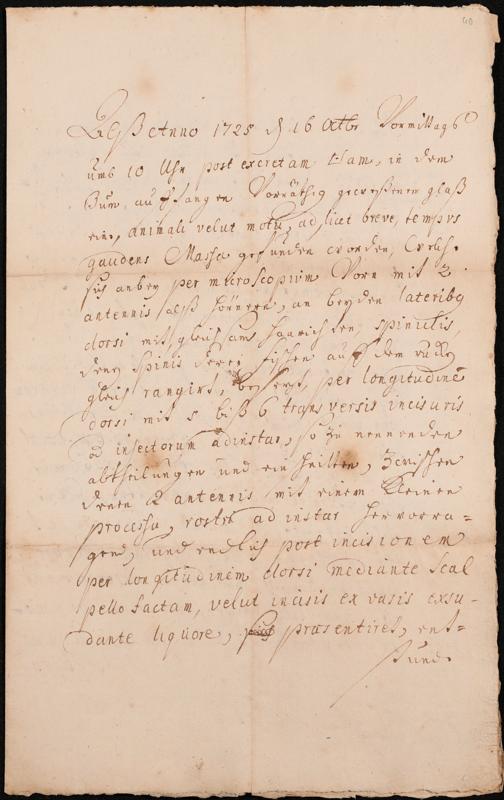 40
Deß Anno 1725 d 16 Octbr Vormittags
umb 10 Uhr post excretam Ham, in dem
Zum auffangen Vorräthig gewesenem glaß
eine, animali velut motu, ad licet breve tempus
gaudens Massa gefunden worden, welche
sich anbey per microscopium Vorn mit 2
antennis alß hörnern, an beyden lateribus
dorsi mit gleichsam haarichten spinulis
denen spinis derer fischen auff dem ruck
gleich rangirt, per longitudinē
dorsi mit 5 biß 6 transversis incisuris
ad insectorum adinstar, so zu nennenden
abtheilungen und eintheilten, zwischen
denen 2 antennis mit einem kleinen
processu, rostri ad instar hervorra-
gend, und endlich post incisionem
per longitudinem dorsi mediante scal
pello factam, velut incisis ex vasis exsu-
dante liquore, præsentiret, ent-
stund.